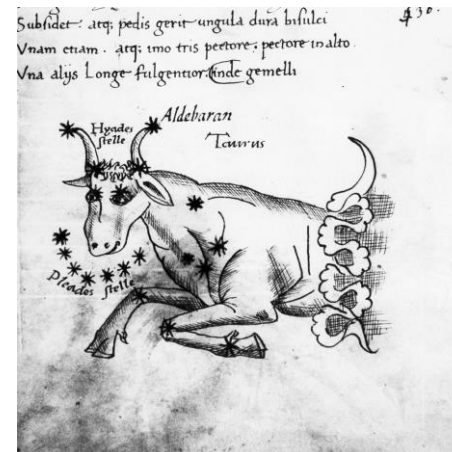 Subsidet: atq; pedis gerit ungula dura bisulci
Vnam etiam. atq; imo tris pectore; pectore in alto
Vna alijs Longe fulgentior. hinc gemelli
Aldebaran
Hyades
stelle
Taurus
Pleades stelle